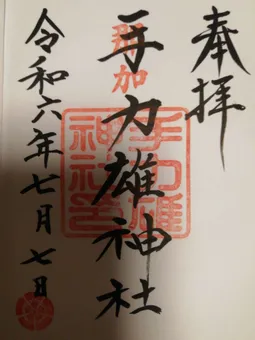 奉拝
那加
手力雄神社
手力雄
神社印
令和六年七月七日